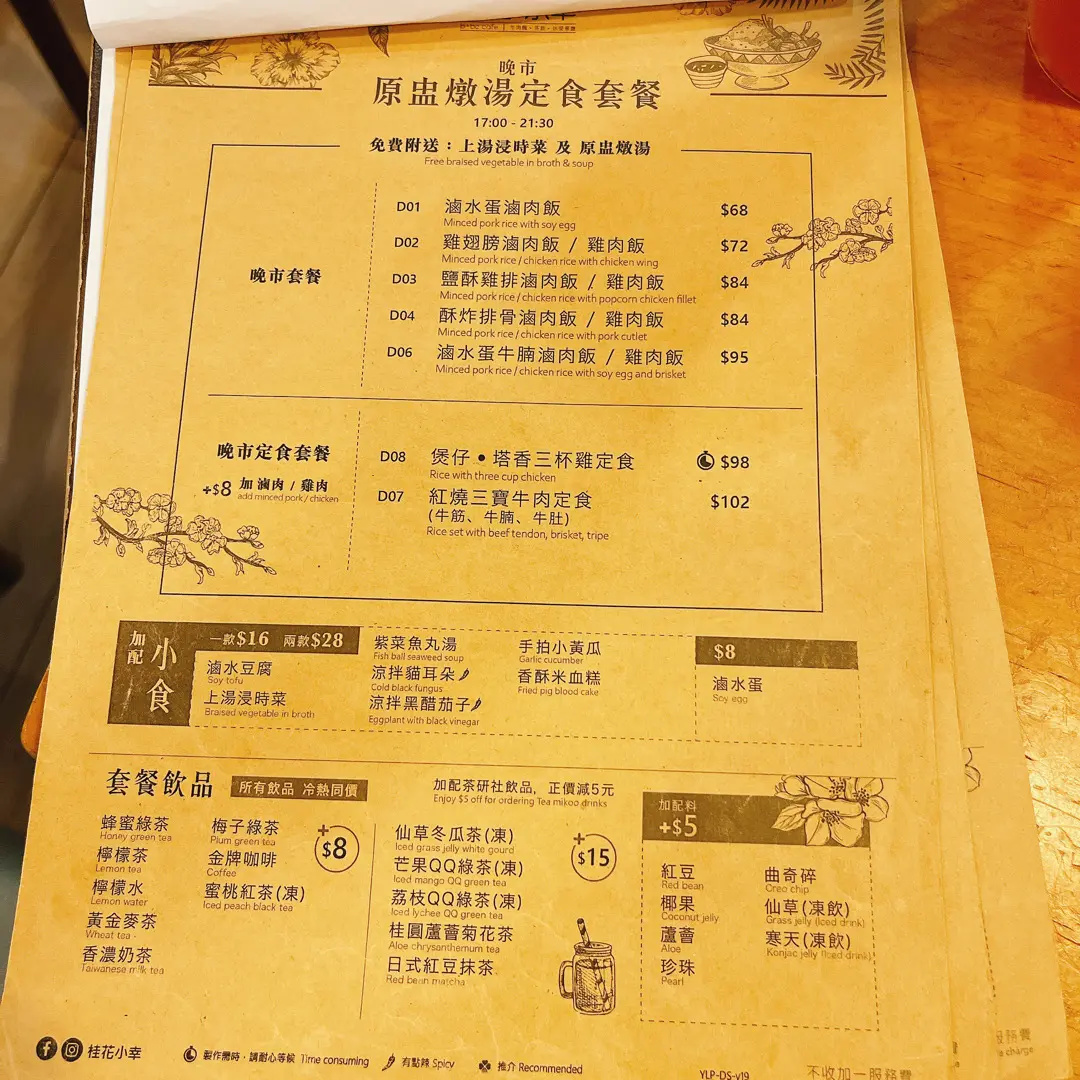 晚市
原盅燉湯定食套餐
17:00 - 21:30
免費附送：上湯浸時菜 及 原盅燉湯
Free braised vegetable in broth & soup
晚市套餐
D01 滷水蛋滷肉飯 $68
Minced pork rice with soy egg
D02 雞翅膀滷肉飯 / 雞肉飯 $72
Minced pork rice / chicken rice with chicken wing
D03 鹽酥雞排滷肉飯 / 雞肉飯 $84
Minced pork rice / chicken rice with popcorn chicken fillet
D04 酥炸排骨滷肉飯 / 雞肉飯 $84
Minced pork rice / chicken rice with pork cutlet
D06 滷水蛋牛腩滷肉飯 / 雞肉飯 $95
Minced pork rice / chicken rice with soy egg and brisket
晚市定食套餐
+$8 加 滷肉 / 雞肉
add minced pork / chicken
D08 煲仔•塔香三杯雞定食 $98
Rice with three cup chicken
D07 紅燒三寶牛肉定食 $102
(牛筋、牛腩、牛肚)
Rice set with beef tendon, brisket, tripe
加配
小食
一款$16 兩款$28
滷水豆腐
Soy tofu
上湯浸時菜
Braised vegetable in broth
紫菜魚丸湯
Fish ball seaweed soup
涼拌貓耳朵
Cold black fungus
涼拌黑醋茄子
Eggplant with black vinegar
手拍小黃瓜
Garlic cucumber
香酥米血糕
Fried pig blood cake
$8
滷水蛋
Soy egg
套餐飲品 所有飲品 冷熱同價
蜂蜜綠茶
Honey green tea
檸檬茶
Lemon tea
檸檬水
Lemon water
黃金麥茶
Wheat tea
香濃奶茶
Taiwanese milk tea
梅子綠茶
Plum green tea
金牌咖啡
Coffee
蜜桃紅茶(凍)
Iced peach black tea
+$8
加配茶研社飲品，正價減5元
Enjoy $5 off for ordering Tea mikoo drinks
仙草冬瓜茶(凍)
Iced grass jelly white gourd
芒果QQ綠茶(凍)
Iced mango QQ green tea
荔枝QQ綠茶(凍)
Iced lychee QQ green tea
桂圓蘆薈菊花茶
Aloe chrysanthemum tea
日式紅豆抹茶
Red bean matcha
+$15
加配料
+$5
紅豆
Red bean
椰果
Coconut jelly
蘆薈
Aloe
珍珠
Pearl
曲奇碎
Oreo chip
仙草(凍飲)
Grass jelly (Iced drink)
寒天(凍飲)
Konjac jelly (Iced drink)
桂花小幸
製作需時，請耐心等候 Time consuming
有點辣 Spicy
推介 Recommended
YLP-DS-v19
不收加一服務費
服務費
charge